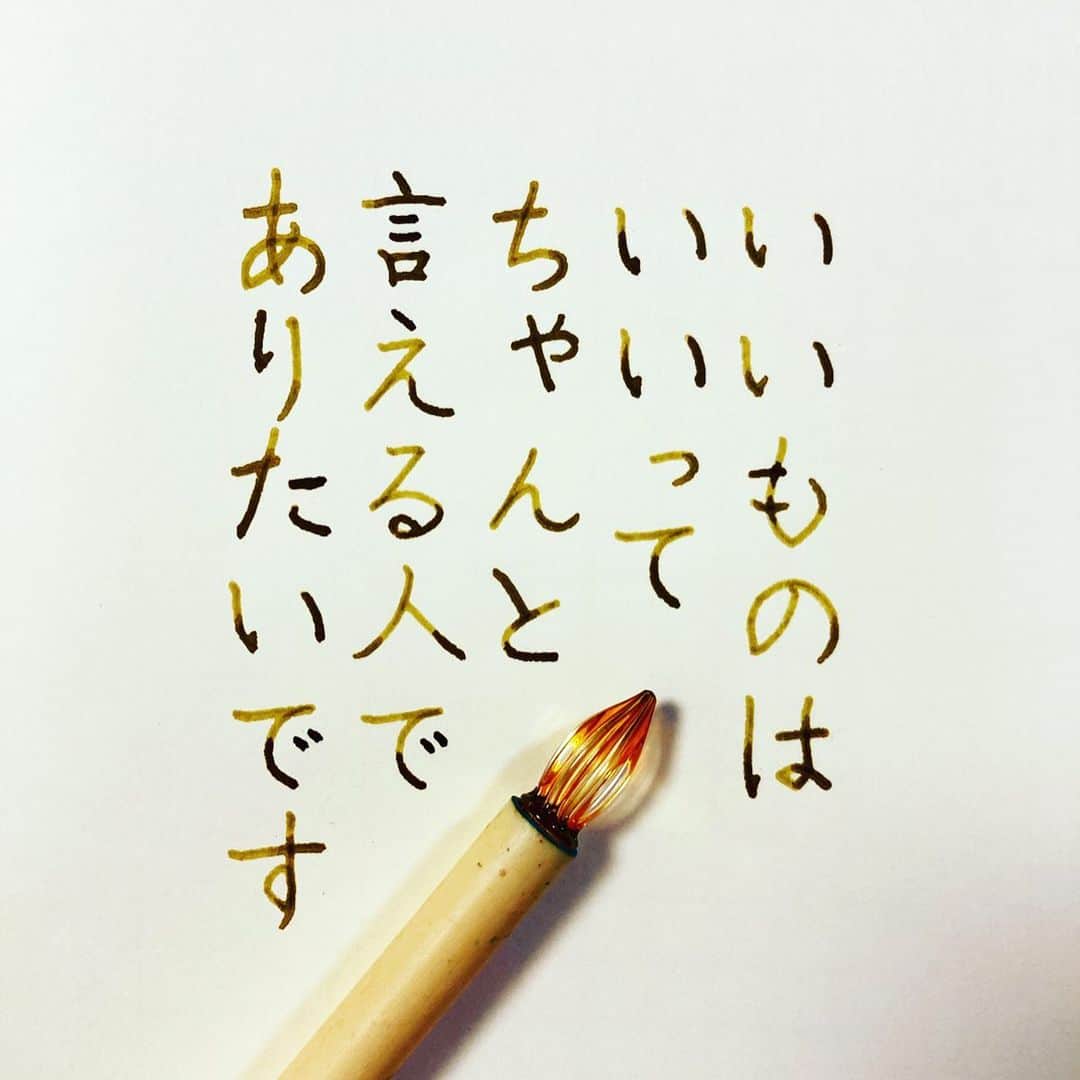 いいものは
いいって
ちゃんと
言える人で
ありたいです